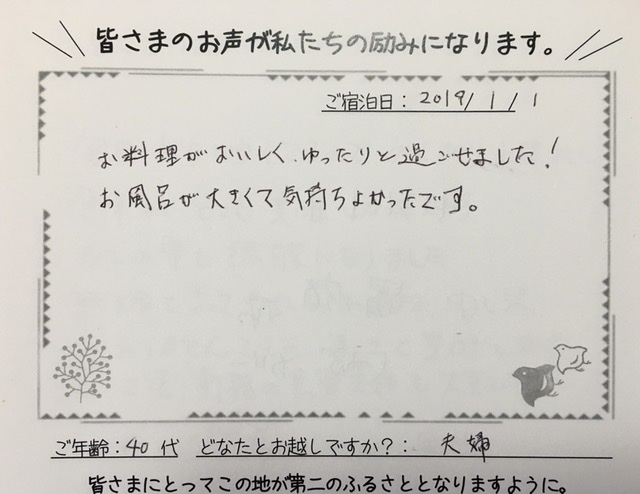 皆さまのお声が私たちの励みになります。
ご宿泊日：2019/1/1
お料理がおいしく、ゆったりと過ごせました！
お風呂が大きくて気持ちよかったです。
ご年齢：40代 どなたとお越しですか？： 夫婦
皆さまにとってこの地が第二のふるさととなりますように。